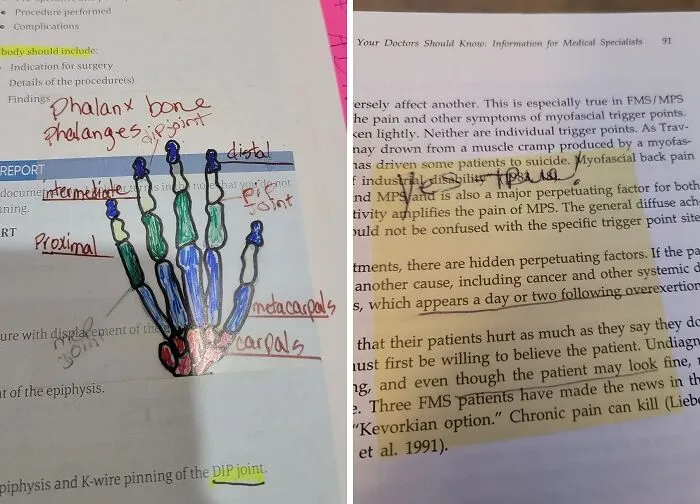 • Procedure performed
• Complications
body should include:
Indication for surgery
Details of the procedure(s)
Findings
Phalanx bone
Phalanges
dip joint
distal
REPORT
intermediate
terms in the note that you do not
ning.
pip
joint
RT
Proximal
metacarpals
ure with displacement of the
mcp
joint
carpals
nt of the epiphysis.
epiphysis and K-wire pinning of the DIP joint.
Your Doctors Should Know: Information for Medical Specialists 91
ersely affect another. This is especially true in FMS/MPS
he pain and other symptoms of myofascial trigger points.
ken lightly. Neither are individual trigger points. As Trav-
may drown from a muscle cramp produced by a myofas-
has driven some patients to suicide. Myofascial back pain
f industrial disability
Yes
nd MPS and is also a major perpetuating factor for both
tivity amplifies the pain of MPS. The general diffuse ach-
ould not be confused with the specific trigger point site
tments, there are hidden perpetuating factors. If the pa
another cause, including cancer and other systemic d
s, which appears a day or two following overexertion
that their patients hurt as much as they say they do
ust first be willing to believe the patient. Undiagn
ng, and even though the patient may look fine,
e. Three FMS patients have made the news in th
"Kevorkian option." Chronic pain can kill (Liebe
et al. 1991).